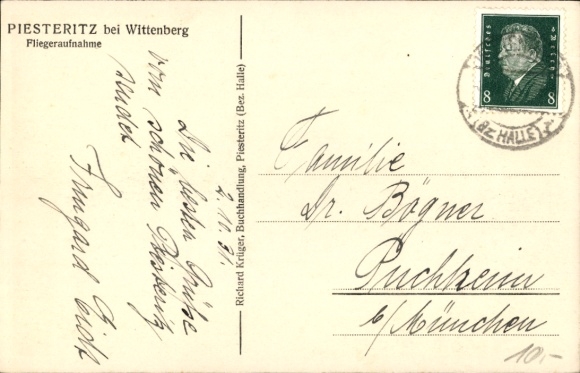 PIESTERITZ bei Wittenberg
Fliegeraufnahme
2. 11. 31.
Die besten Grüße
vom schönen Piesteritz
sendet
Irmgard
Richard Krüger, Buchhandlung, Piesteritz (Bez. Halle)
Deutsches Reich
8 8
(Bz HALLE)
Familie
Dr. Bögner
Puchheim
b/München
10.-